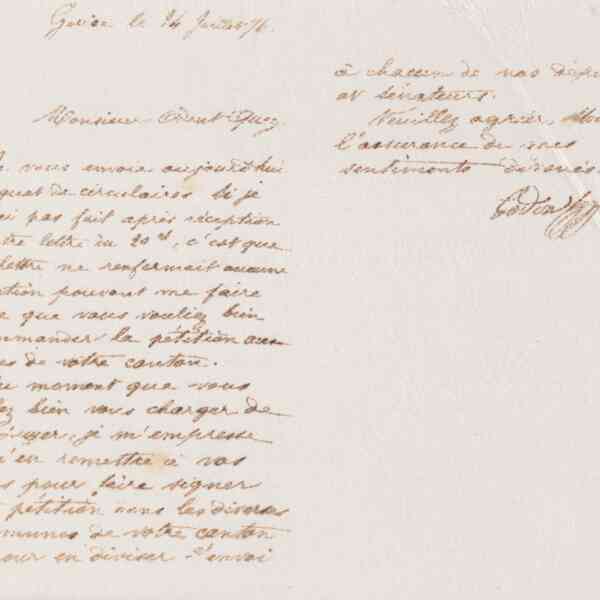 le 14 Juillet 76.
Monsieur
vous envoie aujourd'hui
quet de circulaires si je
ai pas fait après réception
tre lettre du 20 ct, c'est que
lettre ne renfermait aucune
ction pouvant me faire
e que vous vouliez bien
mmander la pétition aux
es de votre canton.
u moment que vous
lez bien vous charger de
je m'empresse
'en remettre à vos
s pour faire signer
pétition dans les diverses
munes de votre canton
our en diviser l'envoi
à chacun de nos dépu
et sénateurs.
Veuillez agréer, Mon
l'assurance de mes
sentiments dévoués